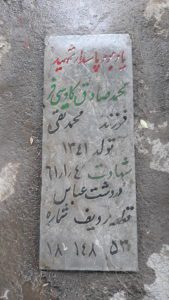 یادبود پاسدار شهید
محمد صادق کاوسی فر
فرزند محمد تقی
تولد ۱۳۴۱
شهادت ۶۱/۱/۴
دردشت عباس
قطعه ردیف شماره
۵۳ ۱۴۸ ۱۸